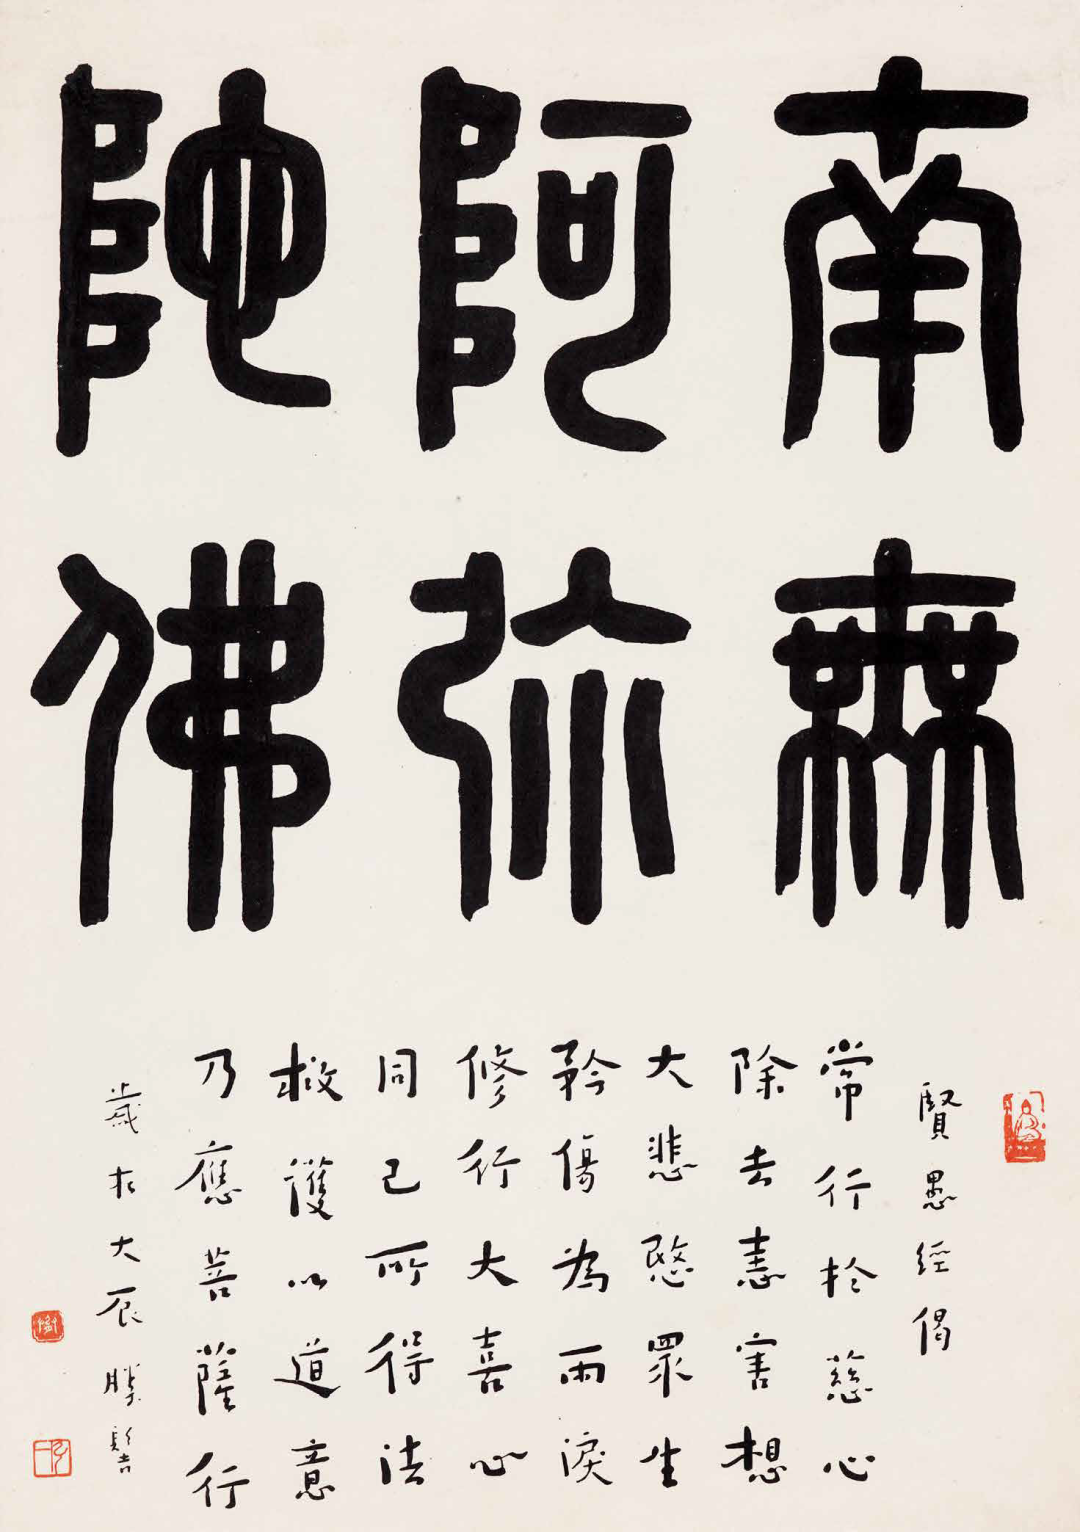 南無
阿弥
陀佛
賢愚經偈
常行於慈心
除去恚害想
大悲愍眾生
矜傷為雨淚
修行大喜心
同己所得法
救護以道意
乃應菩薩行
歲在大辰 勝髻
弘一